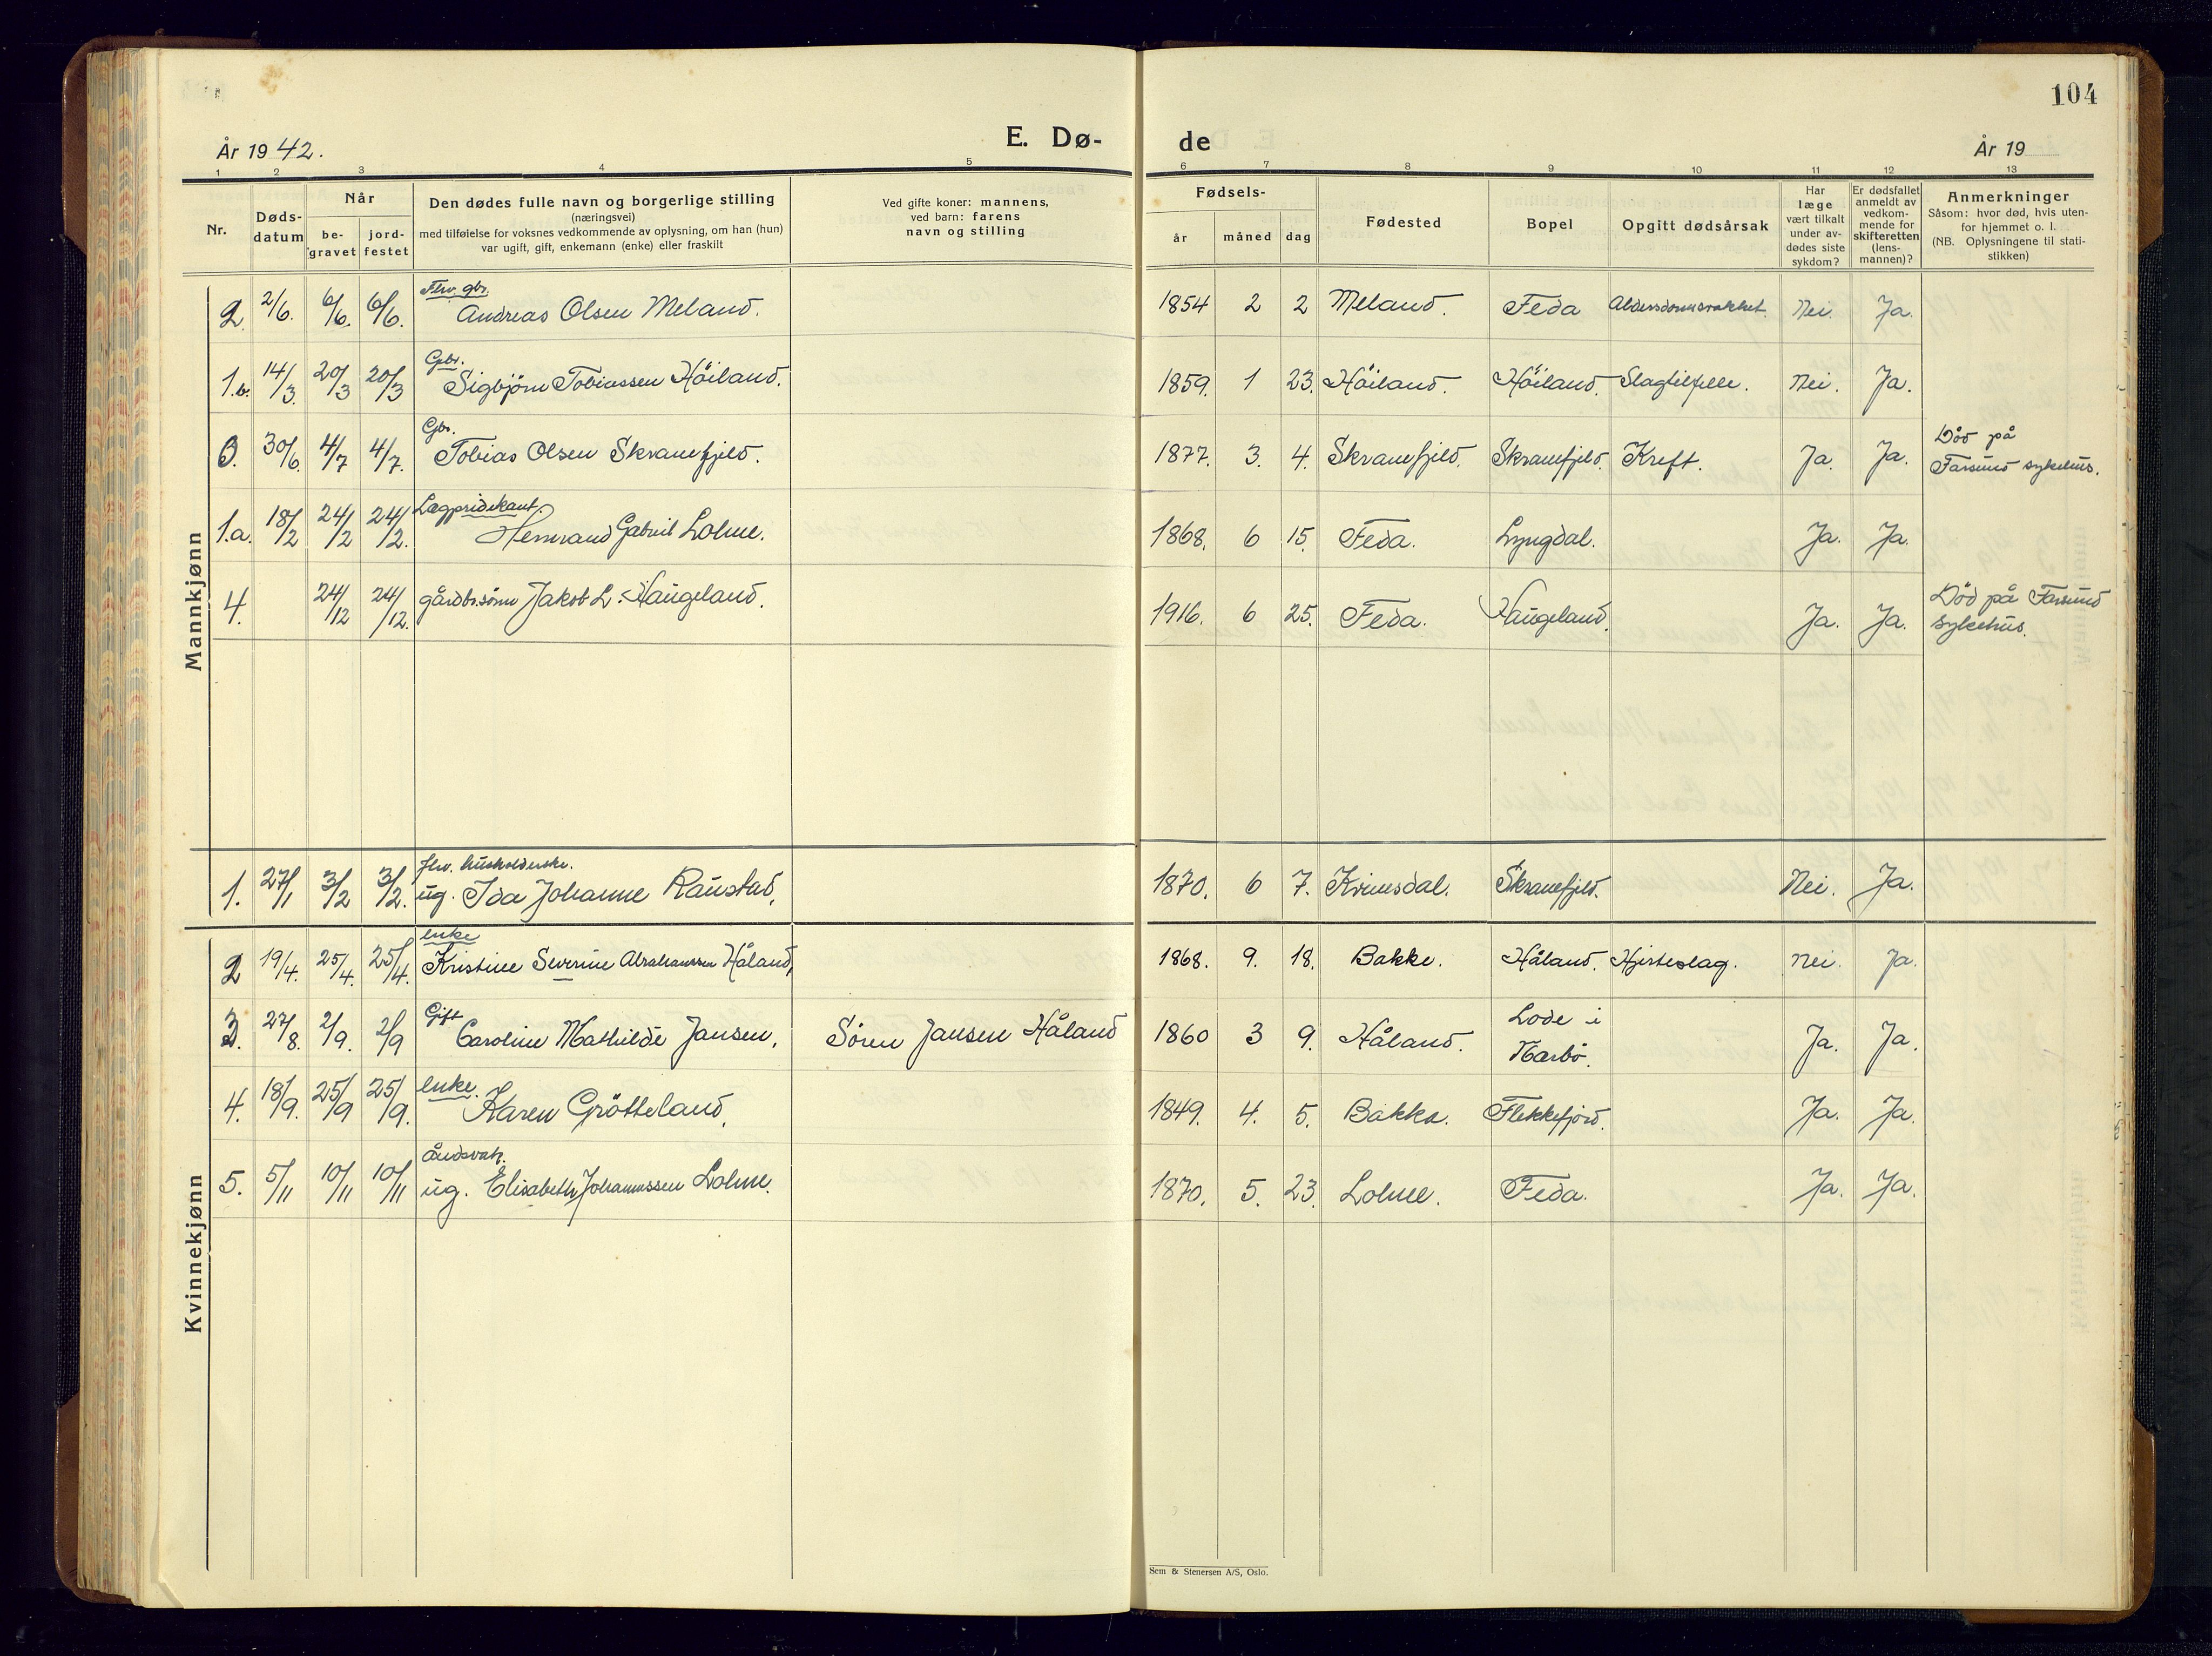 104
År 1942.
E. Dø-
de
År 19
1 2 3 4 5 6 7 8 9 10 11 12 13
Nr.
Døds-
datum
Når
be-
gravet
jord-
festet
Den dødes fulle navn og borgerlige stilling
(næringsvei)
med tilføielse for voksnes vedkommende av oplysning, om han (hun)
var ugift, gift, enkemann (enke) eller fraskilt
Ved gifte koner: mannens,
ved barn: farens
navn og stilling
Fødsels-
år måned dag
Fødested
Bopel
Opgitt dødsårsak
Har
læge
vært tilkalt
under av-
dødes siste
sykdom?
Er dødsfallet
anmeldt av
vedkom-
mende for
skifteretten
(lens-
mannen)?
Anmerkninger
Såsom: hvor død, hvis uten-
for hjemmet o. l.
(NB. Oplysningene til stati-
stikken)
Mannkjønn
Fhv. gbr.
2. 2/6. 6/6. 6/6. Andreas Olsen Meland. 1854 2 2 Meland. Feda Alderdomssvakhet. Nei. Ja.
Gbr.
1.b. 14/3. 20/3 20/3 Sigbjørn Tobiassen Höiland. 1859. 1 23. Höiland. Höiland. Slagtilfelle. Nei. Ja.
Gbr.
3. 30/6. 4/7 4/7. Tobias Olsen Skranefjeld. 1877. 3. 4. Skranefjeld. Skranefjeld. Kreft. Ja. Ja. Död på
Farsund sykehus.
Lægpredikant.
1.a. 18/2 24/2 24/2. Gabriel Lolme. 1868. 6 15. Feda. Lyngdal. Ja. Ja.
4. 24/12 24/12. gårdbr.sönn Jakob L. Haugeland. 1916. 6 25. Feda. Haugeland. Ja. Ja. Död på Farsund
sykehus.
Kvinnekjønn
fhv. husholderske.
1. 27/1 3/2 3/2. ug. Ida Johanne Raustad. 1870. 6 7. Kvinesdal. Skranefjeld. Nei. Ja.
enke
2 19/4. 25/4. 25/4. Kristine Severine Abrahamssen Håland. 1868. 9. 18. Bakke. Håland. Hjerteslag. Nei. Ja.
Gift
3. 27/8. 2/9. 2/9 Caroline Mathilde Jansen. Sören Jansen Håland 1860 3 9. Håland. Lode i
Narbö. Ja. Ja.
enke.
4. 18/9. 25/9 25/9. Karen Grötteland. 1849. 4. 5. Bakke. Flekkefjord. Ja. Ja.
åndsvak.
5. 5/11 10/11 10/11 ug. Elisabeth Johannessen Lolme. 1870. 5. 23. Lolme. Feda. Ja. Ja.
Sem & Stenersen A/S, Oslo.